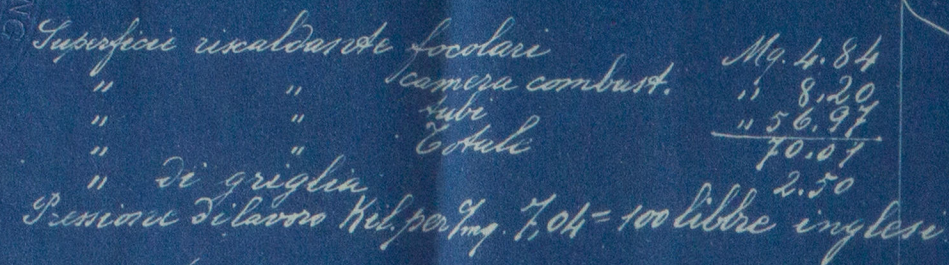 Superficie riscaldante focolari Mq. 4.84
" " camera combust. " 8.20
" " tubi " 56.97
" " Totale 70.01
" di griglia 2.50
Pressione di lavoro Kil. per %mq. 7,04 = 100 libbre inglesi
NG